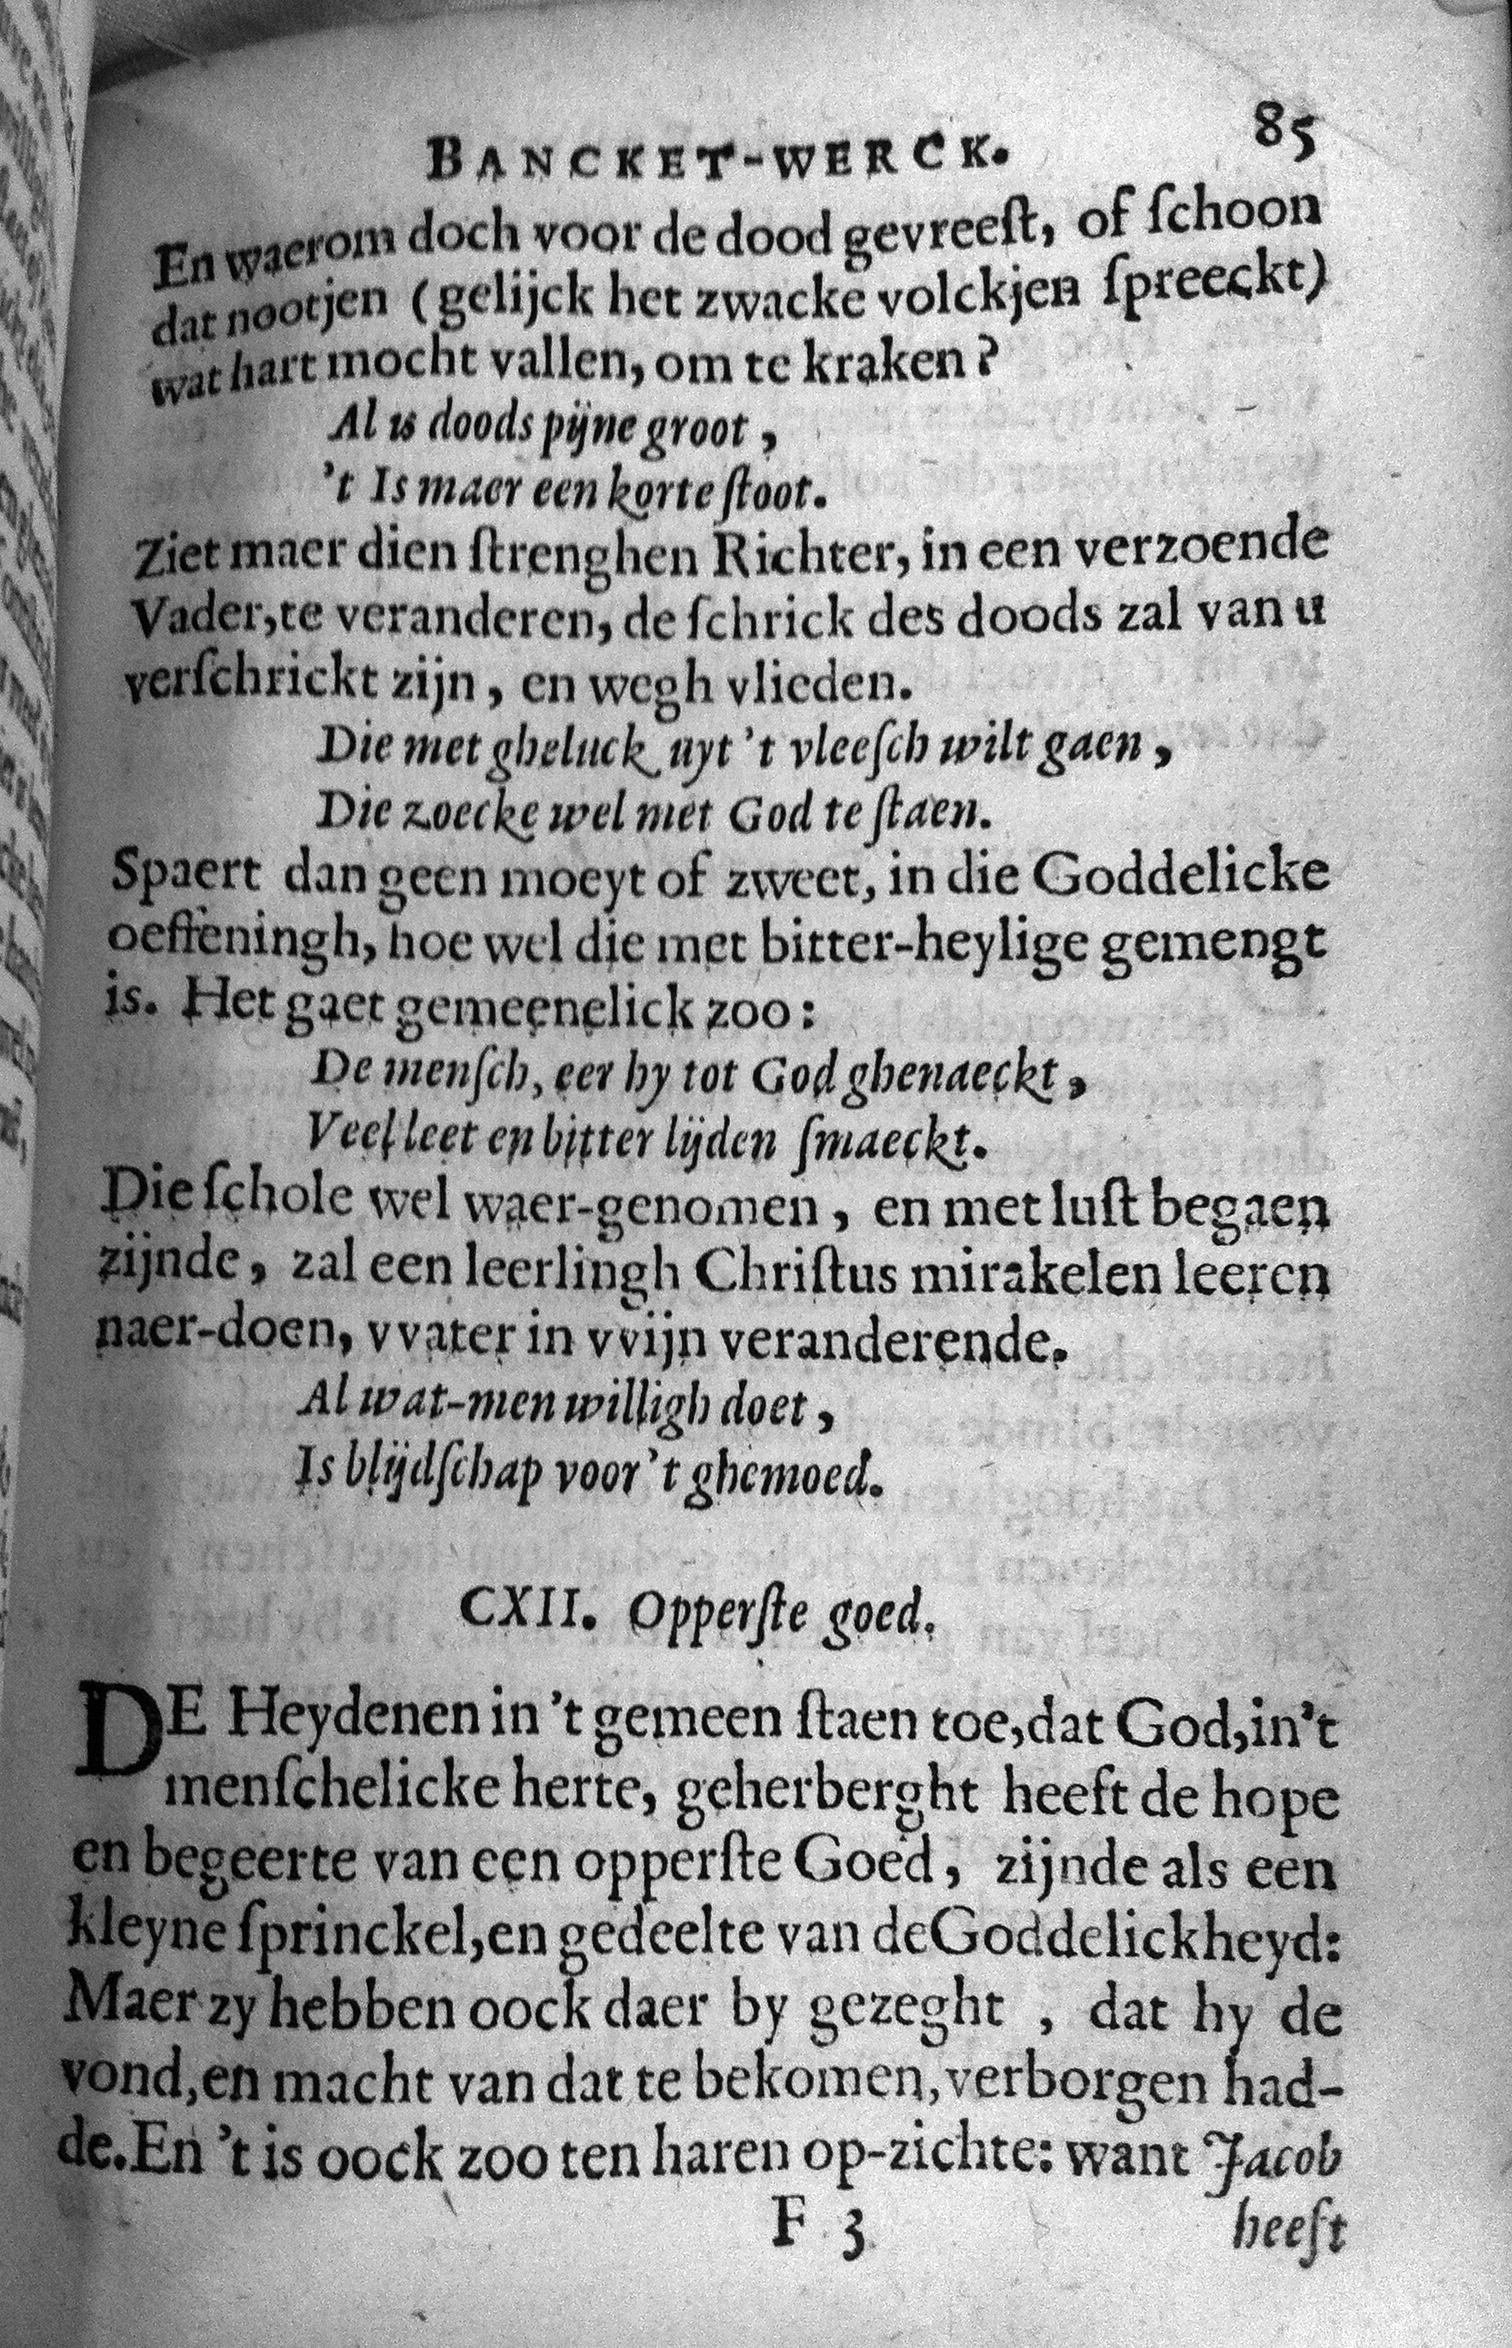 BANCKET-WERCK. 85
En waerom doch voor de dood gevreeſt, of ſchoon
dat nootjen (gelijck het zwacke volckjen ſpreeckt)
wat hart mocht vallen, om te kraken?
Al is doods pijne groot,
't Is maer een korte ſtoot.
Ziet maer dien ſtrenghen Richter, in een verzoende
Vader, te veranderen, de ſchrick des doods zal van u
verſchrickt zijn, en wegh vlieden.
Die met gheluck uyt 't vleeſch wilt gaen,
Die zoecke wel met God te ſtaen.
Spaert dan geen moeyt of zweet, in die Goddelicke
oeffeningh, hoe wel die met bitter-heylige gemengt
is. Het gaet gemeenelick zoo:
De menſch, eer hy tot God ghenaeckt,
Veel leet en bitter lijden ſmaeckt.
Die ſchole wel waer-genomen, en met luſt begaen
zijnde, zal een leerlingh Chriſtus mirakelen leeren
naer-doen, vvater in vvijn veranderende.
Al wat-men willigh doet,
Is blijdſchap voor 't ghemoed.
CXII. Opperſte goed.
DE Heydenen in 't gemeen ſtaen toe, dat God, in 't
menſchelicke herte, geherberght heeft de hope
en begeerte van een opperſte Goed, zijnde als een
kleyne ſprinckel, en gedeelte van de Goddelickheyd:
Maer zy hebben oock daer by gezeght, dat hy de
vond, en macht van dat te bekomen, verborgen had-
de. En 't is oock zoo ten haren op-zichte: want Jacob
F 3 heeft